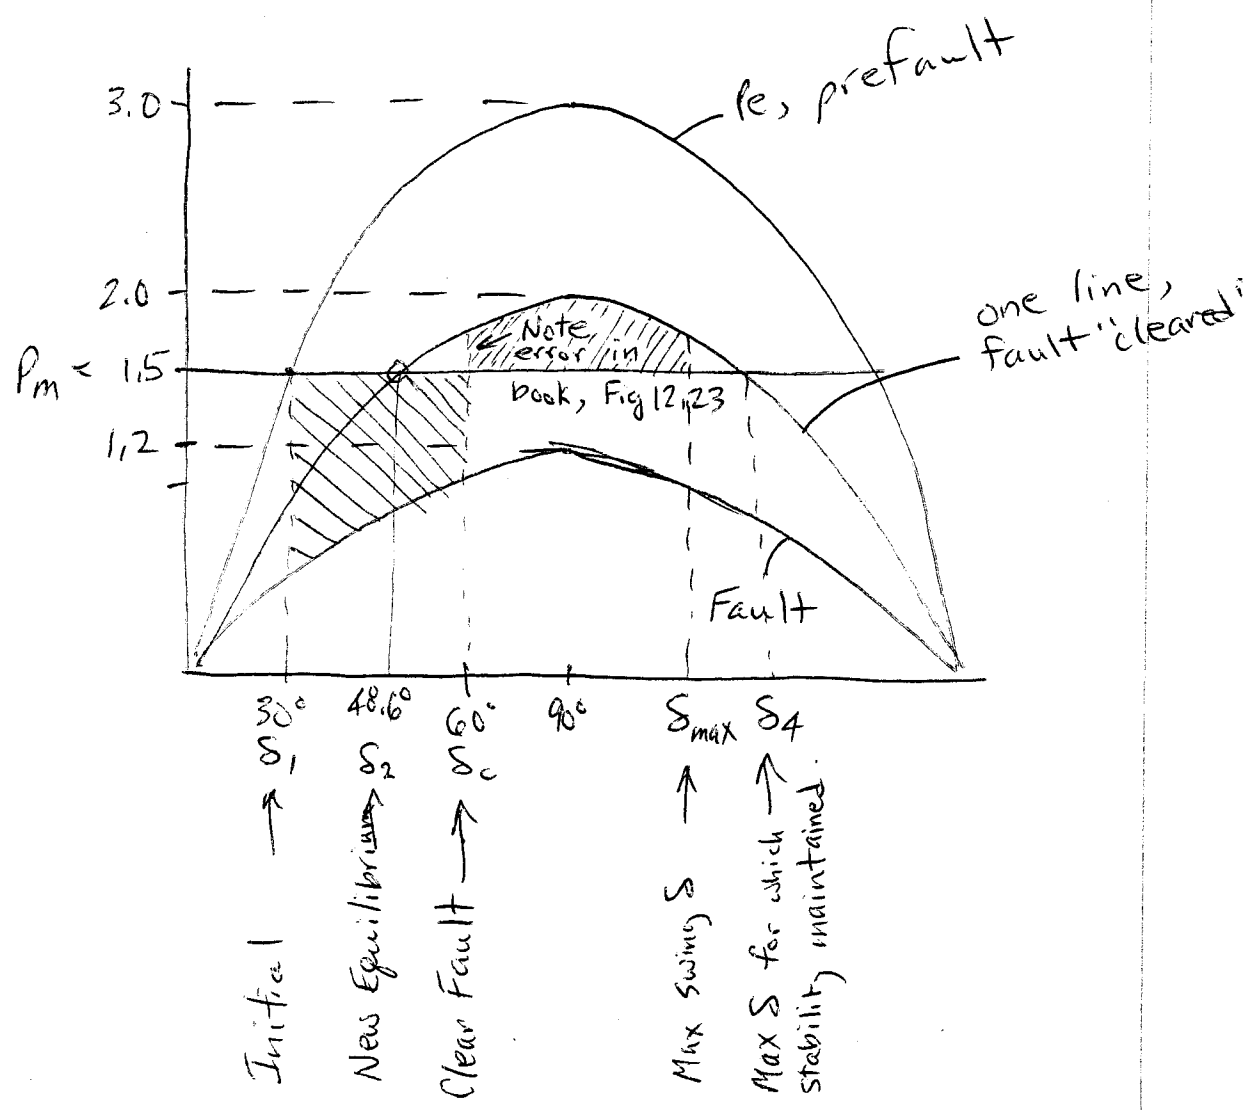 3.0
Pe, prefault
2.0
one line,
fault "cleared"
Note
error in
book, Fig 12.23
Pm = 1.5
1.2
Fault
30° 48.6° 60° 90° δmax δ4
δ1 δ2 δc
Initial
New Equilibrium
Clear Fault
Max swing δ
Max δ for which
stability maintained.